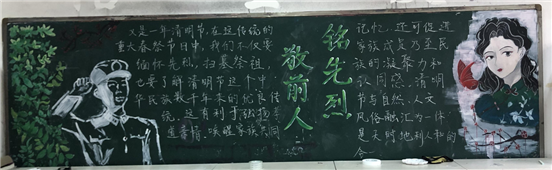 又是一年清明节,在这传统的
重大春祭节日中,我们不仅要
缅怀先烈,扫墓祭祖,
也要了解清明节这个中
华民族数千年来的优良传
统,这有利于弘扬孝
道亲情、唤醒家族共同
敬前人
铭先烈
记忆,还可促进
家族成员乃至民
族的凝聚力和
认同感。清明
节与自然、人文
风俗融汇为一体,
是天时地利人和的
合